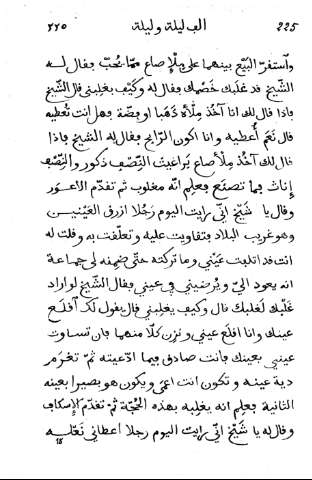 ٢٢٥ الف ليلة وليلة 225
واستقرّ البَيْع بينهما على مِلْإِ صاع ممّا تحُبّ فقال لــه
الشَّيخ قد غلبك خَصْمك فقال له وكَيْف يغلبني قال الشَّيخ
باذا قال لك انا آخُذ مِلْأَه ذَهَبا او فِضّة فهل انت تُعْطيه
قال نَعَم أُعْطِيه وانا اكون الرّابح فقال له الشَّيخ باذا
قال لك آخُذ مِلْأ صاع بَراغيث النِّصْف ذُكور والنِّصْف
إناث فما تصنَع فعلِم انّه مغلوب ثم تقدّم الاعــور
وقال يا شَيْخ انّي رايت اليوم رَجُلا ازرق العَيْنَيــن
وهو غَريب البِلاد فتقاويت عليه وتعلّقت به وقلت له
انت قد اتلفت عَيْني وما تركته حتّى ضمِنه لي جماعة
انه يعود اليّ ويُرضيني في عيني فقال الشَّيخ لو اراد
غَلْبك لغلبك قال وكيف يغلبني قال يقول لك اقلَع
عينك وانا اقلَع عيني ونزِن كلّا منهما فان تساوت
عيني بعينك فانت صادق فيما ادّعيته ثمّ تغرَم
دِية عينه وتكون انت اعمى ويكون هو بصيرا بعينه
الثانية فعلِم انه يغلِبه بهذه الحُجّة ثمّ تقدّم الإسكاف
وقال له يا شَيْخ انّي رايت اليوم رجلا اعطاني نَعْلَــه